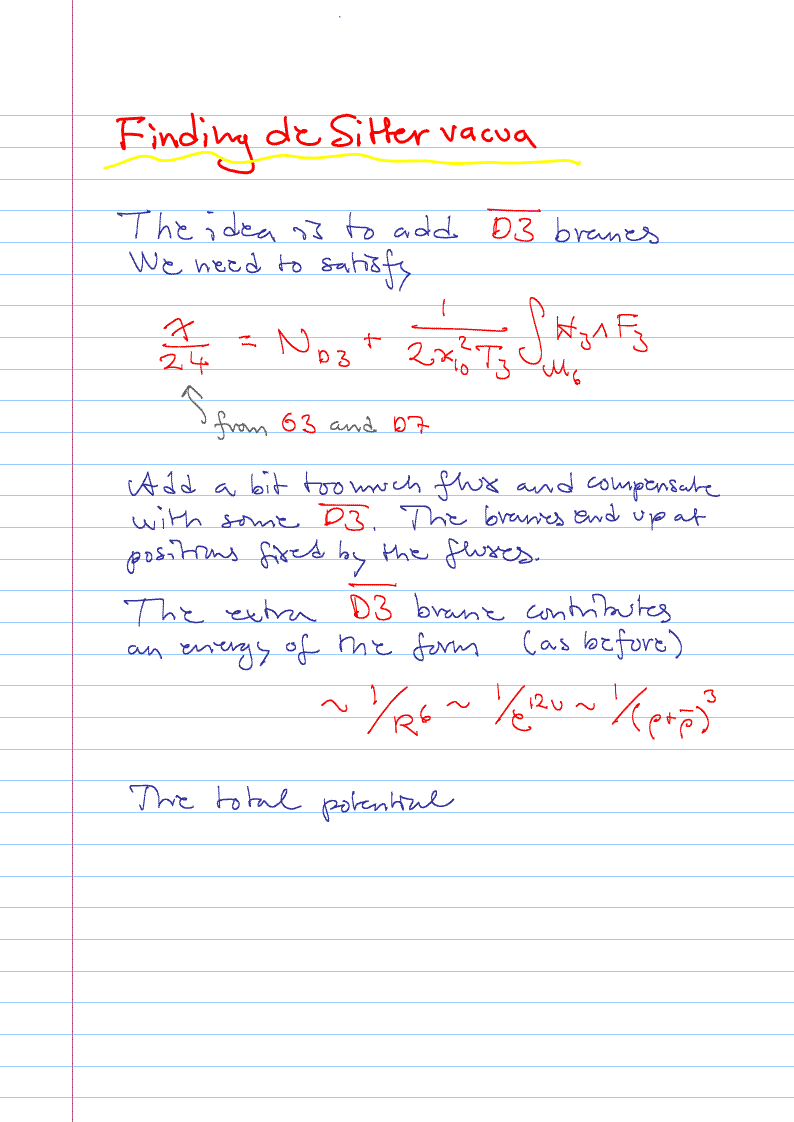 Finding de Sitter vacua
The idea is to add D̅3̅ branes
We need to satisfy
χ/24 = N_D3 + 1/(2κ₁₀²T₃) ∫_M₆ H₃ ∧ F₃
from G3 and D7
Add a bit too much flux and compensate
with some D̅3̅. The branes end up at
positions fixed by the fluxes.
The extra D̅3̅ brane contributes
an energy of the form (as before)
~ 1/R⁶ ~ 1/e^{12u} ~ 1/(ρ+ρ̅)³
The total potential